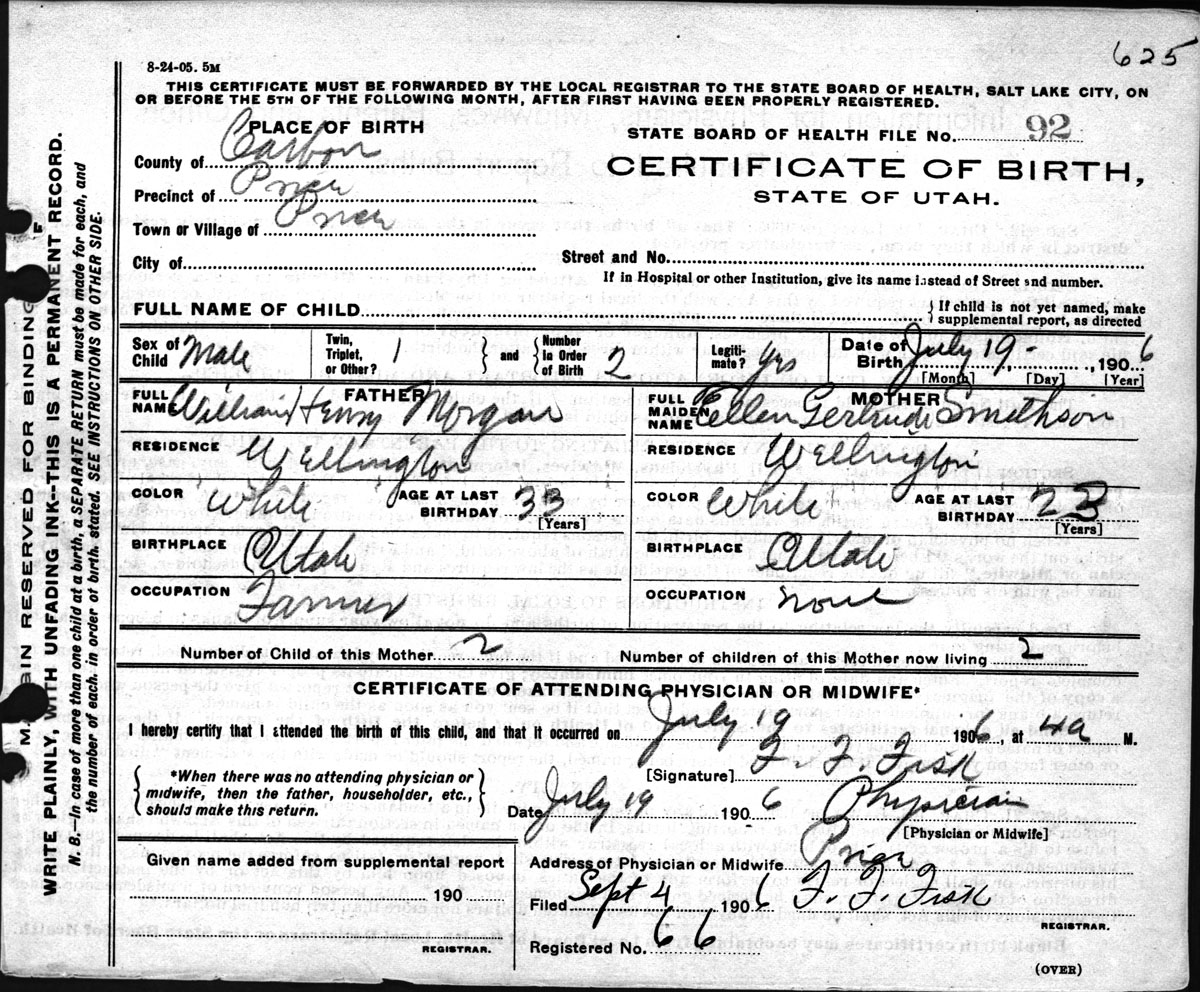 625
8-24-05. 5M
THIS CERTIFICATE MUST BE FORWARDED BY THE LOCAL REGISTRAR TO THE STATE BOARD OF HEALTH, SALT LAKE CITY, ON
OR BEFORE THE 5TH OF THE FOLLOWING MONTH, AFTER FIRST HAVING BEEN PROPERLY REGISTERED.
PLACE OF BIRTH
STATE BOARD OF HEALTH FILE No. 92
County of Carbon
CERTIFICATE OF BIRTH,
Precinct of Price
STATE OF UTAH.
Town or Village of Price
City of
Street and No.
If in Hospital or other Institution, give its name instead of Street and number.
FULL NAME OF CHILD
{ If child is not yet named, make
supplemental report, as directed
Sex of Child Male
Twin, Triplet, or Other? 1 } and { Number in Order of Birth 2
Legiti- mate? yes
Date of Birth July 19, 1906
[Month] [Day] [Year]
FATHER
FULL NAME William Henry Morgan
MOTHER
FULL MAIDEN NAME Ellen Gertrude Smithson
RESIDENCE Wellington
RESIDENCE Wellington
COLOR White AGE AT LAST BIRTHDAY 33 [Years]
COLOR White AGE AT LAST BIRTHDAY 23 [Years]
BIRTHPLACE Utah
BIRTHPLACE Utah
OCCUPATION Farmer
OCCUPATION None
Number of Child of this Mother 2
Number of children of this Mother now living 2
CERTIFICATE OF ATTENDING PHYSICIAN OR MIDWIFE*
I hereby certify that I attended the birth of this child, and that it occurred on July 19 1906, at 4a M.
[Signature] F. F. Fisk
{ *When there was no attending physician or
midwife, then the father, householder, etc.,
should make this return. }
Date July 19 1906 Physician
[Physician or Midwife]
Given name added from supplemental report
190
REGISTRAR.
Address of Physician or Midwife Price
Filed Sept 4 1906 F. F. Fisk
REGISTRAR.
Registered No. 66
(OVER)
RESERVED FOR BINDING
WRITE PLAINLY, WITH UNFADING INK--THIS IS A PERMANENT RECORD.
N. B.—In case of more than one child at a birth, a SEPARATE RETURN must be made for each, and
the number of each, in order of birth, stated. SEE INSTRUCTIONS ON OTHER SIDE.